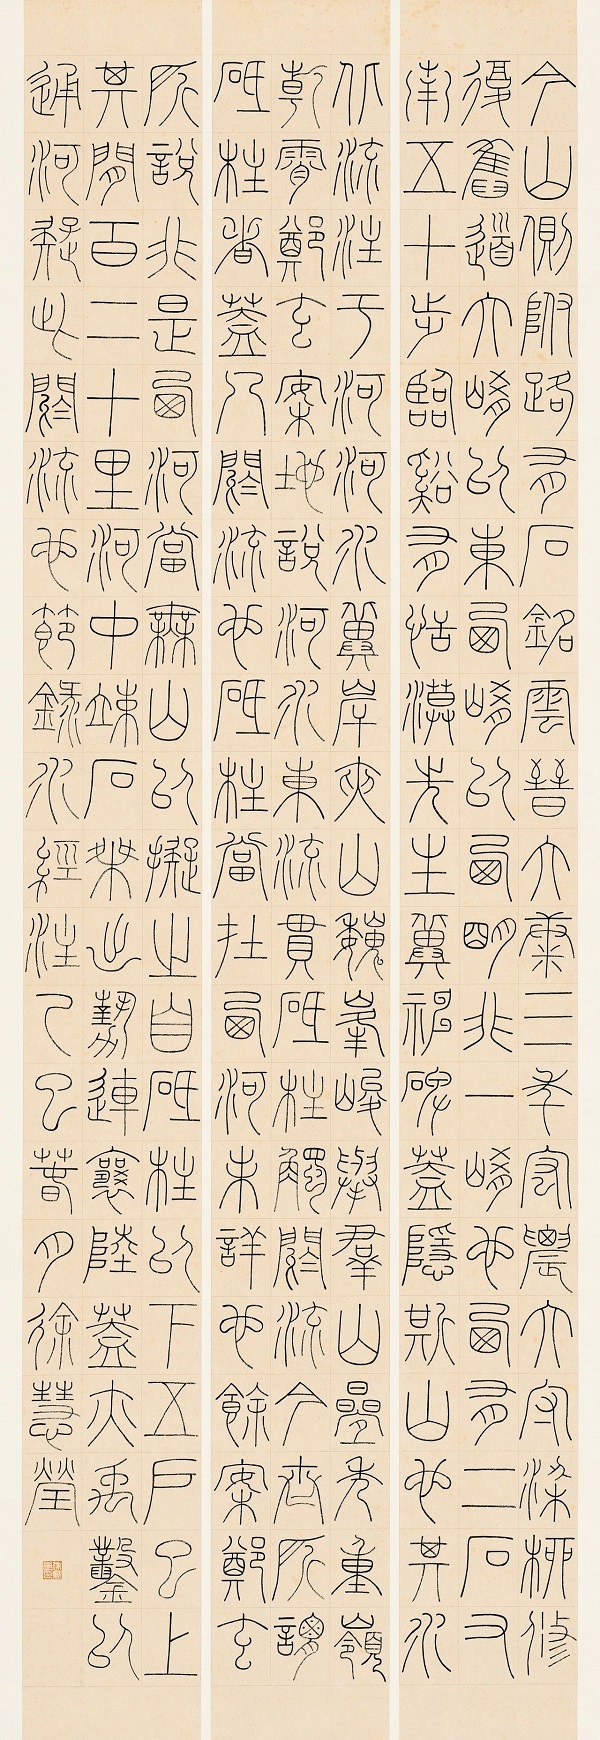 今山側附路有石銘云晉太康三年弘農太守梁柳修
復舊道太崤以東西崤以西明非一崤也西有二石又
南五十步臨谿有恬漠先生翼神碑蓋隱斯山也其水
北流注于河河水翼岸夾山巍峯峻舉羣山疊秀重嶺
乾霄鄭玄案地說河水東流貫砥柱觸閼流今世所謂
砥柱者蓋乃閼流也砥柱當在西河未詳也余案鄭玄
所說非是西河當無山以擬之自砥柱以下五戶已上
其間百二十里河中竦石桀出勢連襄陸蓋亦禹鑿以
通河疑此閼流也節錄水經注乙巳春月徐慧瑩